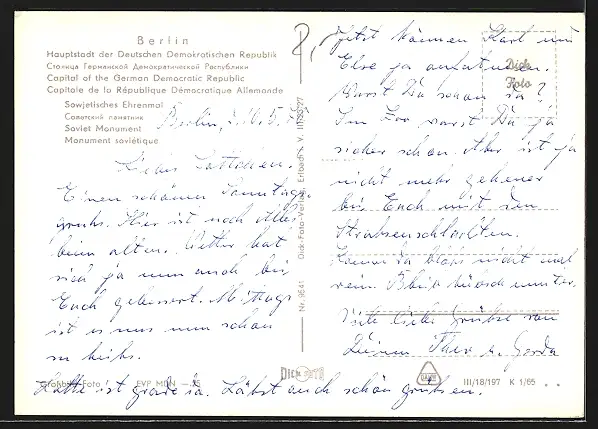 Berlin
Hauptstadt der Deutschen Demokratischen Republik
Столица Германской Демократической Республики
Capital of the German Democratic Republic
Capitale de la République Démocratique Allemande
Sowjetisches Ehrenmal
Советский памятник
Soviet Monument
Monument soviétique
Berlin, d. 16. 5.
Liebes Lottchen.
Einen schönen Sonntags-
gruß. Hier ist noch alles
beim alten. Wetter hat
sich ja nun auch bei
Euch gebessert. Mittags
ist es uns nun schon
zu heiß.
Lotte ist grade da. Läßt auch schön grüßen.
Großbild-Foto EVP MDN —,25
Nr. 9641 Dick-Foto-Verlag, Erlbach i. V.
DICK FOTO
2,-
Jetzt können Karl und
Else ja aufatmen.
Warst Du schon da?
Im Zoo warst Du ja
sicher schon. Aber ist ja
nicht mehr geheuer
bei Euch mit den
Komm da bloß nicht mal
rein. Bleib hübsch munter.
Viele liebe Grüße von
Deinen Theo u. Gerda
Dick
Foto
III/18/197 K 1/65